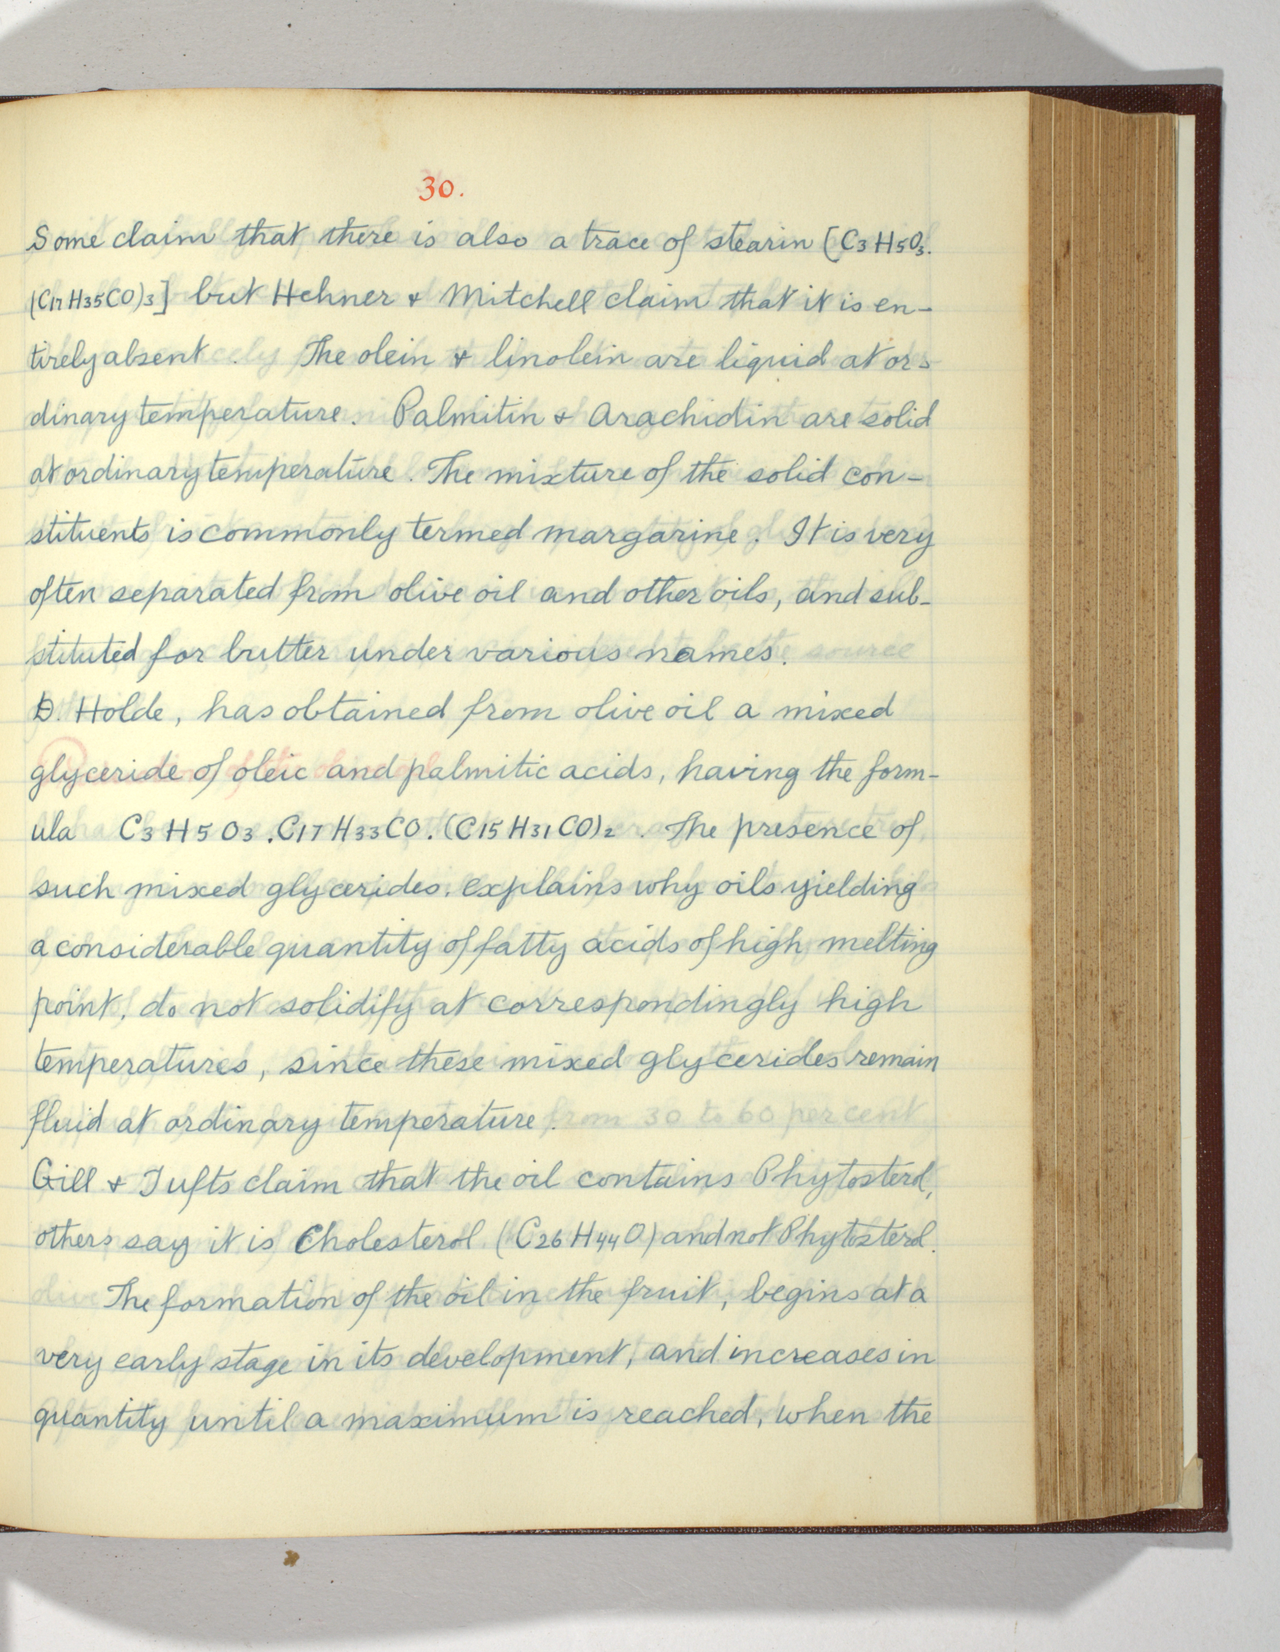 30.
Some claim that there is also a trace of stearin [C3H5O3.
(C17H35CO)3] but Hehner & Mitchell claim that it is en-
tirely absent. The olein & linolein are liquid at or-
dinary temperature. Palmitin & Arachidin are solid
at ordinary temperature. The mixture of the solid con-
stituents is commonly termed margarine. It is very
often separated from olive oil and other oils, and sub-
stituted for butter under various names.
D. Holde, has obtained from olive oil a mixed
glyceride of oleic and palmitic acids, having the form-
ula C3H5O3.C17H33CO.(C15H31CO)2. The presence of
such mixed glycerides. explains why oils yielding
a considerable quantity of fatty acids of high melting
point, do not solidify at correspondingly high
temperatures, since these mixed glycerides remain
fluid at ordinary temperature.
Gill & Tufts claim that the oil contains Phytosterol,
others say it is Cholesterol (C26H44O) and not Phytosterol.
The formation of the oil in the fruit, begins at a
very early stage in its development, and increases in
quantity until a maximum is reached, when the